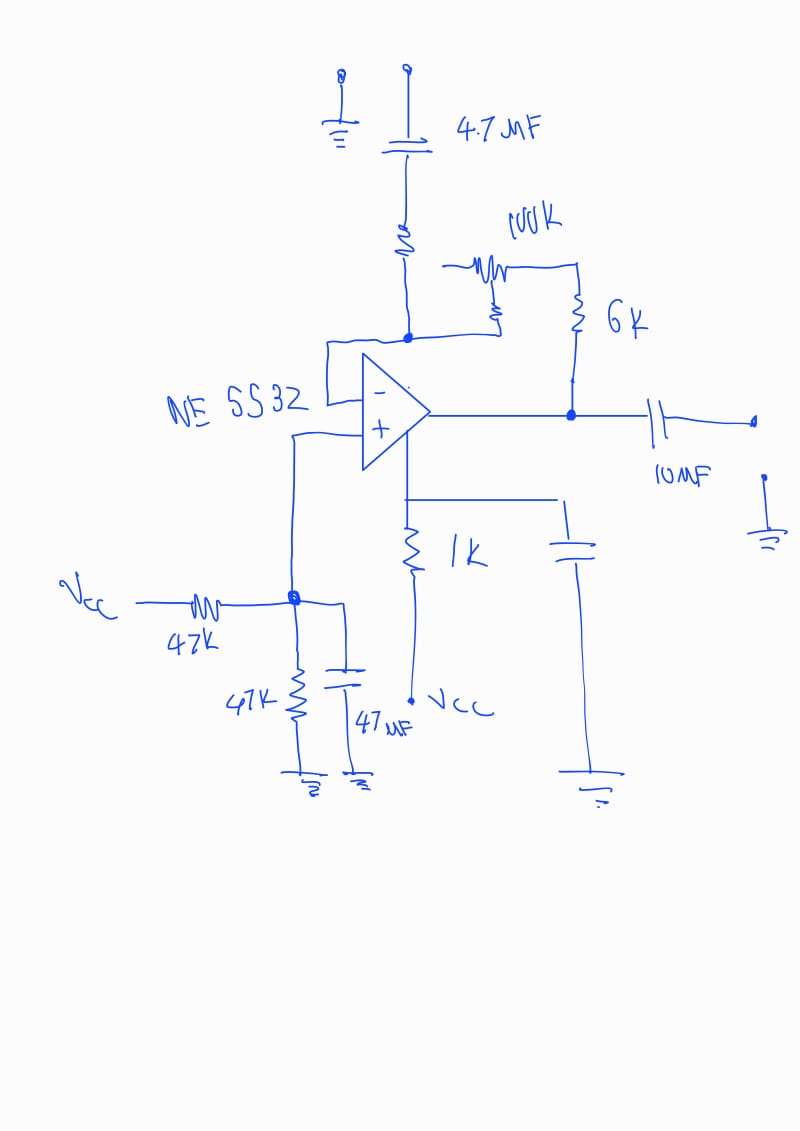 4.7 MF
100K
6K
NE 5532
-
+
10MF
1K
Vcc
47K
47K
47MF
Vcc